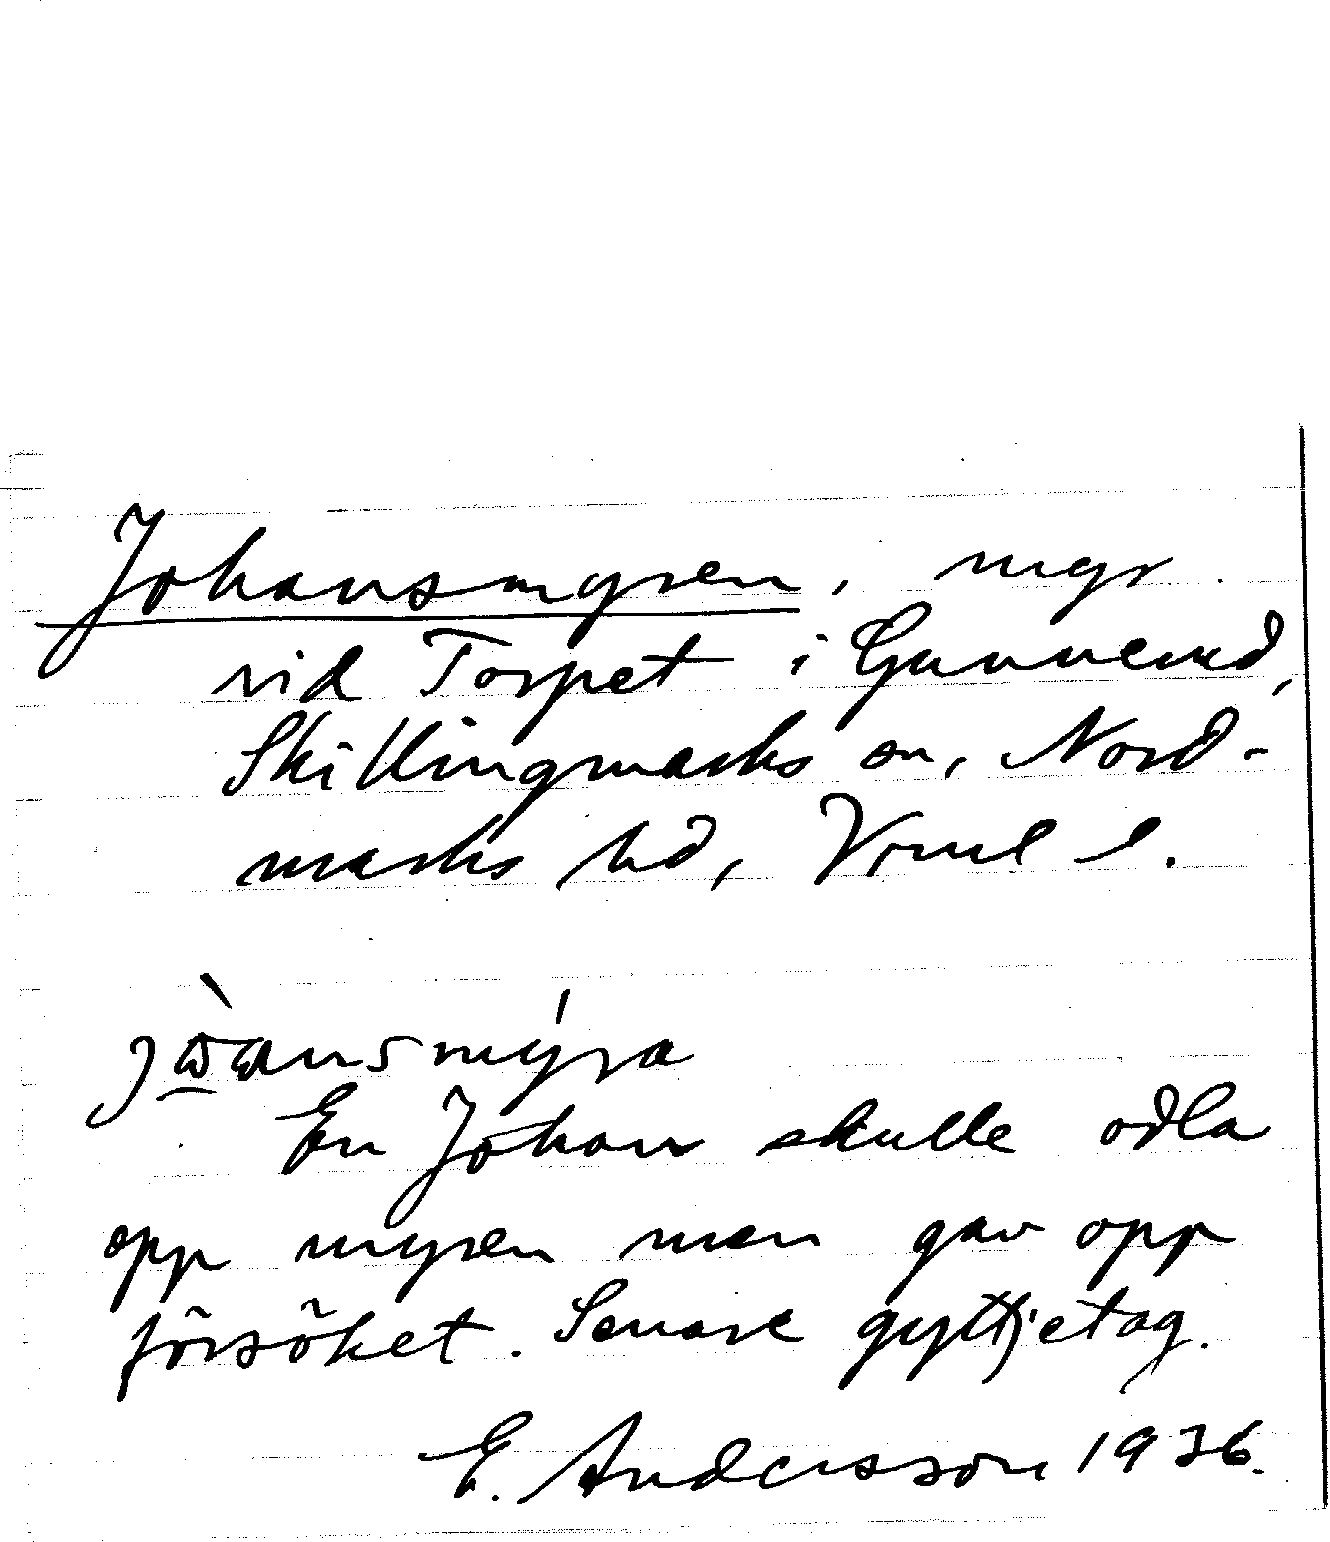 Johansmyren, myr
vid Torpet i Gunnerud,
Skillingmarks sn, Nord-
marks hd, Vrml l.
En Johan skulle odla
opp myren men gav opp
försöket. Senare gyttjetag.
E. Andersson 1936.